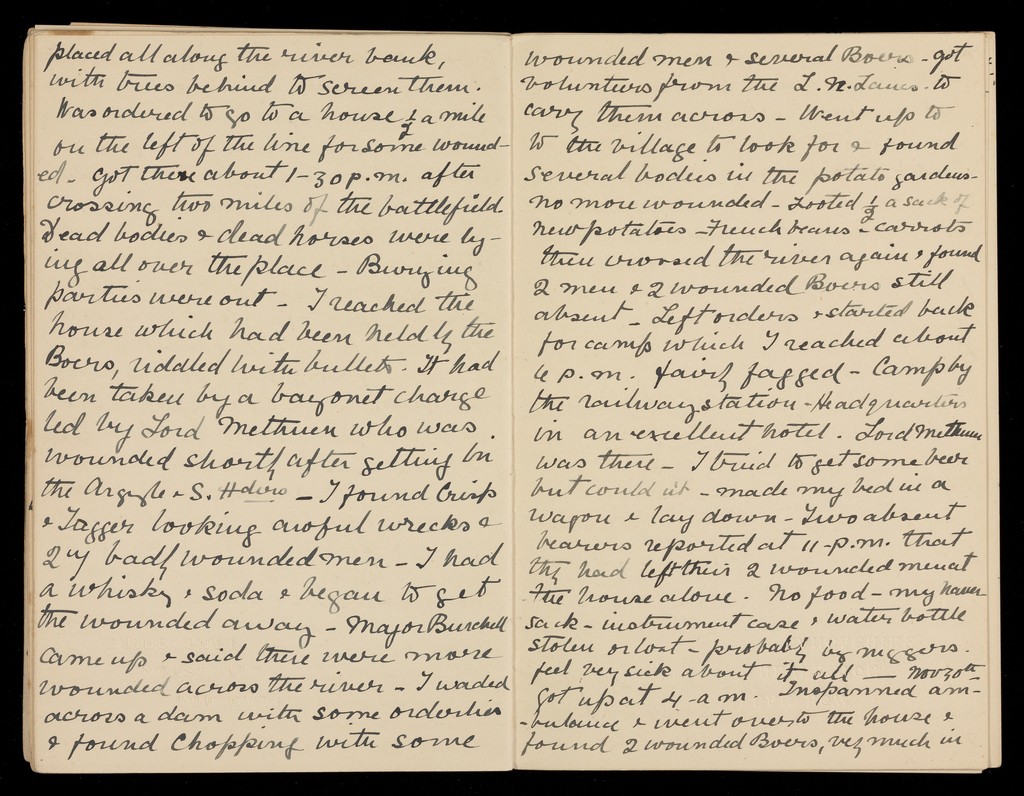 placed all along the river bank,
with trees behind to screen them.
Was ordered to go to a house ½ a mile
on the left of the line for some wound-
ed - got there about 1-30 p.m. after
crossing two miles of the battlefield.
Dead bodies & dead horses were ly-
ing all over the place - Burying
parties were out - I reached the
house which had been held by the
Boers, riddled with bullets. It had
been taken by a bayonet charge
led by Lord Methuen who was
wounded shortly after getting in
the Argyle & S. Hders - I found Crisp
& Jagger looking awful wrecks &
27 badly wounded men - I had
a whisky & soda & began to get
the wounded away - Major Burchell
came up & said there were more
wounded across the river - I waded
across a dam with some orderlies
& found Chopping with some
wounded men & several Boers - got
volunteers from the L. N. Lancs. to
carry them across - Went up to
to the village to look for & found
several bodies in the potato gardens -
no more wounded - Looted ½ a sack of
new potatoes - French beans & carrots
then crossed the river again & found
2 men & 2 wounded Boers still
absent - Left orders & started back
for camp which I reached about
6 p.m. fairly fagged - Camp by
the railway station - Headquarters
in an excellent hotel. Lord Methuen
was there - I tried to get some beer
but could n't - made my bed in a
wagon & lay down - Two absent
bearers reported at 11-p.m. that
they had left their 2 wounded men at
the house alone. No food - my haver-
sack - instrument case & water bottle
stolen or lost - probably by niggers.
feel very sick about it all — Nov 30th -
got up at 4-a m. Inspanned am-
-bulance & went over to the house &
found 2 wounded Boers, very much in